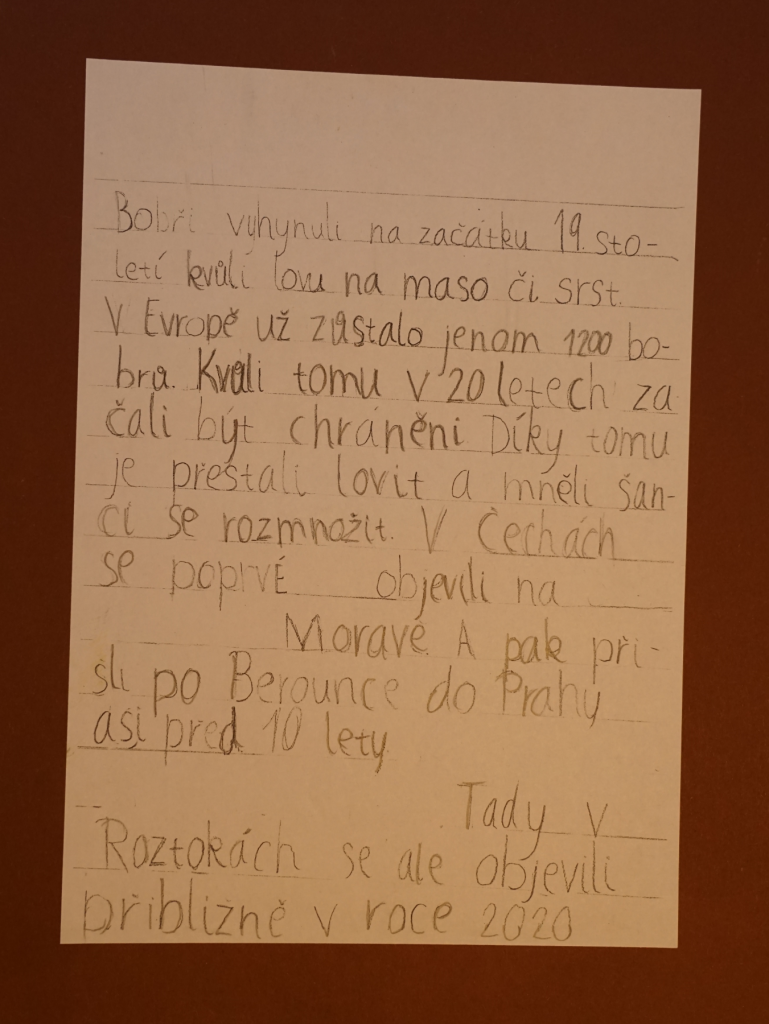 Bobři vyhynuli na začátku 19. sto-
letí kvůli lovu na maso či srst.
V Evropě už zůstalo jenom 1200 bo-
bra. Kvůli tomu v 20 letech za
čali být chráněni Díky tomu
je přestali lovit a mněli šan-
ci se rozmnožit. V Čechách
se poprvé objevili na
Moravě. A pak při-
šli po Berounce do Prahy
asi před 10 lety
Tady v
Roztokách se ale objevili
přibližně v roce 2020